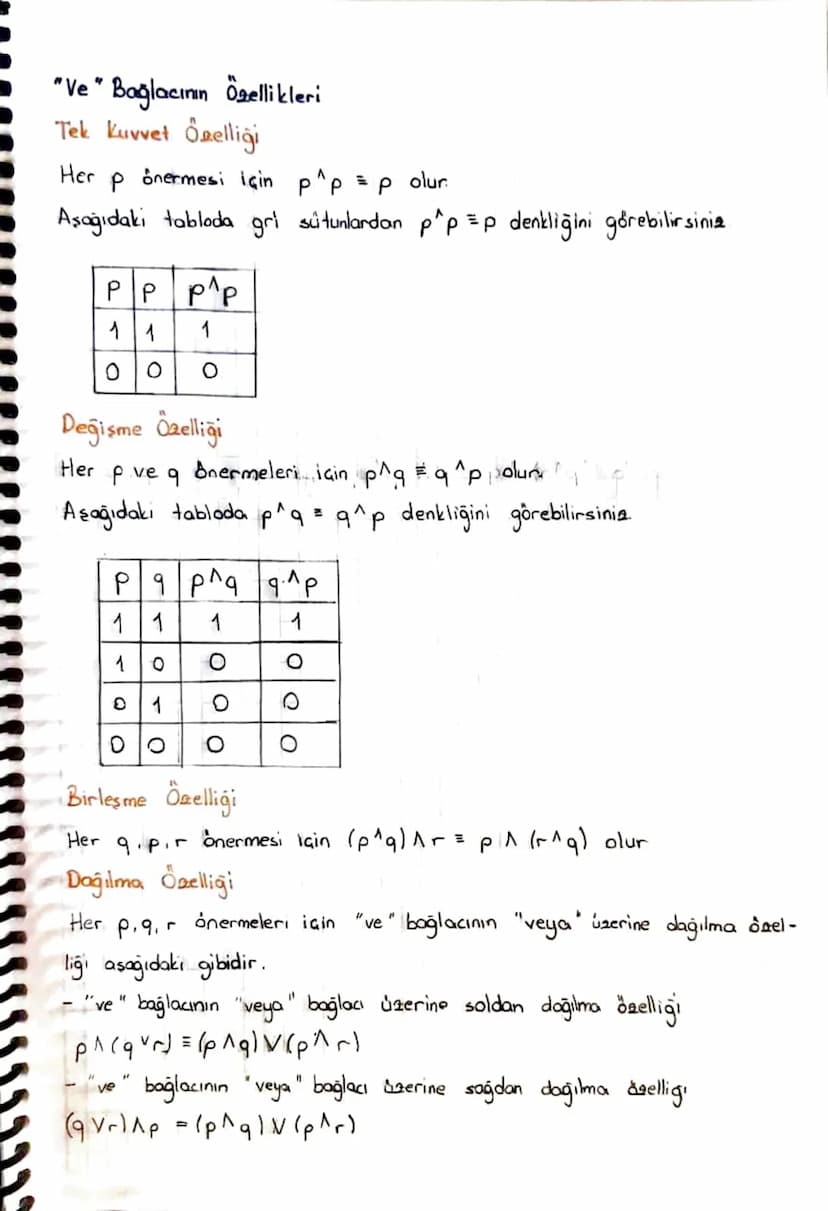 "Ve" Bağlacının Özellikleri
Tek Kuvvet Özelliği
Her p önermesi için p^p ≡ p olur.
Aşağıdaki tabloda gri sütunlardan p^p ≡ p denkliğini görebilirsiniz
P P p^p
1 1 1
0 0 0
Değişme Özelliği
Her p ve q önermeleri için p^q ≡ q^p olur
Aşağıdaki tabloda p^q ≡ q^p denkliğini görebilirsiniz
P q p^q q^p
1 1 1 1
1 0 0 0
0 1 0 0
0 0 0 0
Birleşme Özelliği
Her q,p,r önermesi için (p^q) ∧ r ≡ p ∧ (r^q) olur
Dağılma Özelliği
Her p,q,r önermeleri için "ve" bağlacının "veya" üzerine dağılma özel-
liği aşağıdaki gibidir.
- "ve" bağlacının "veya" bağlacı üzerine soldan dağılma özelliği
p ∧ (q ∨ r) ≡ (p ∧ q) ∨ (p ∧ r)
- "ve" bağlacının "veya" bağlacı üzerine sağdan dağılma özelliği
(q ∨ r) ∧ p = (p ∧ q) ∨ (p ∧ r)